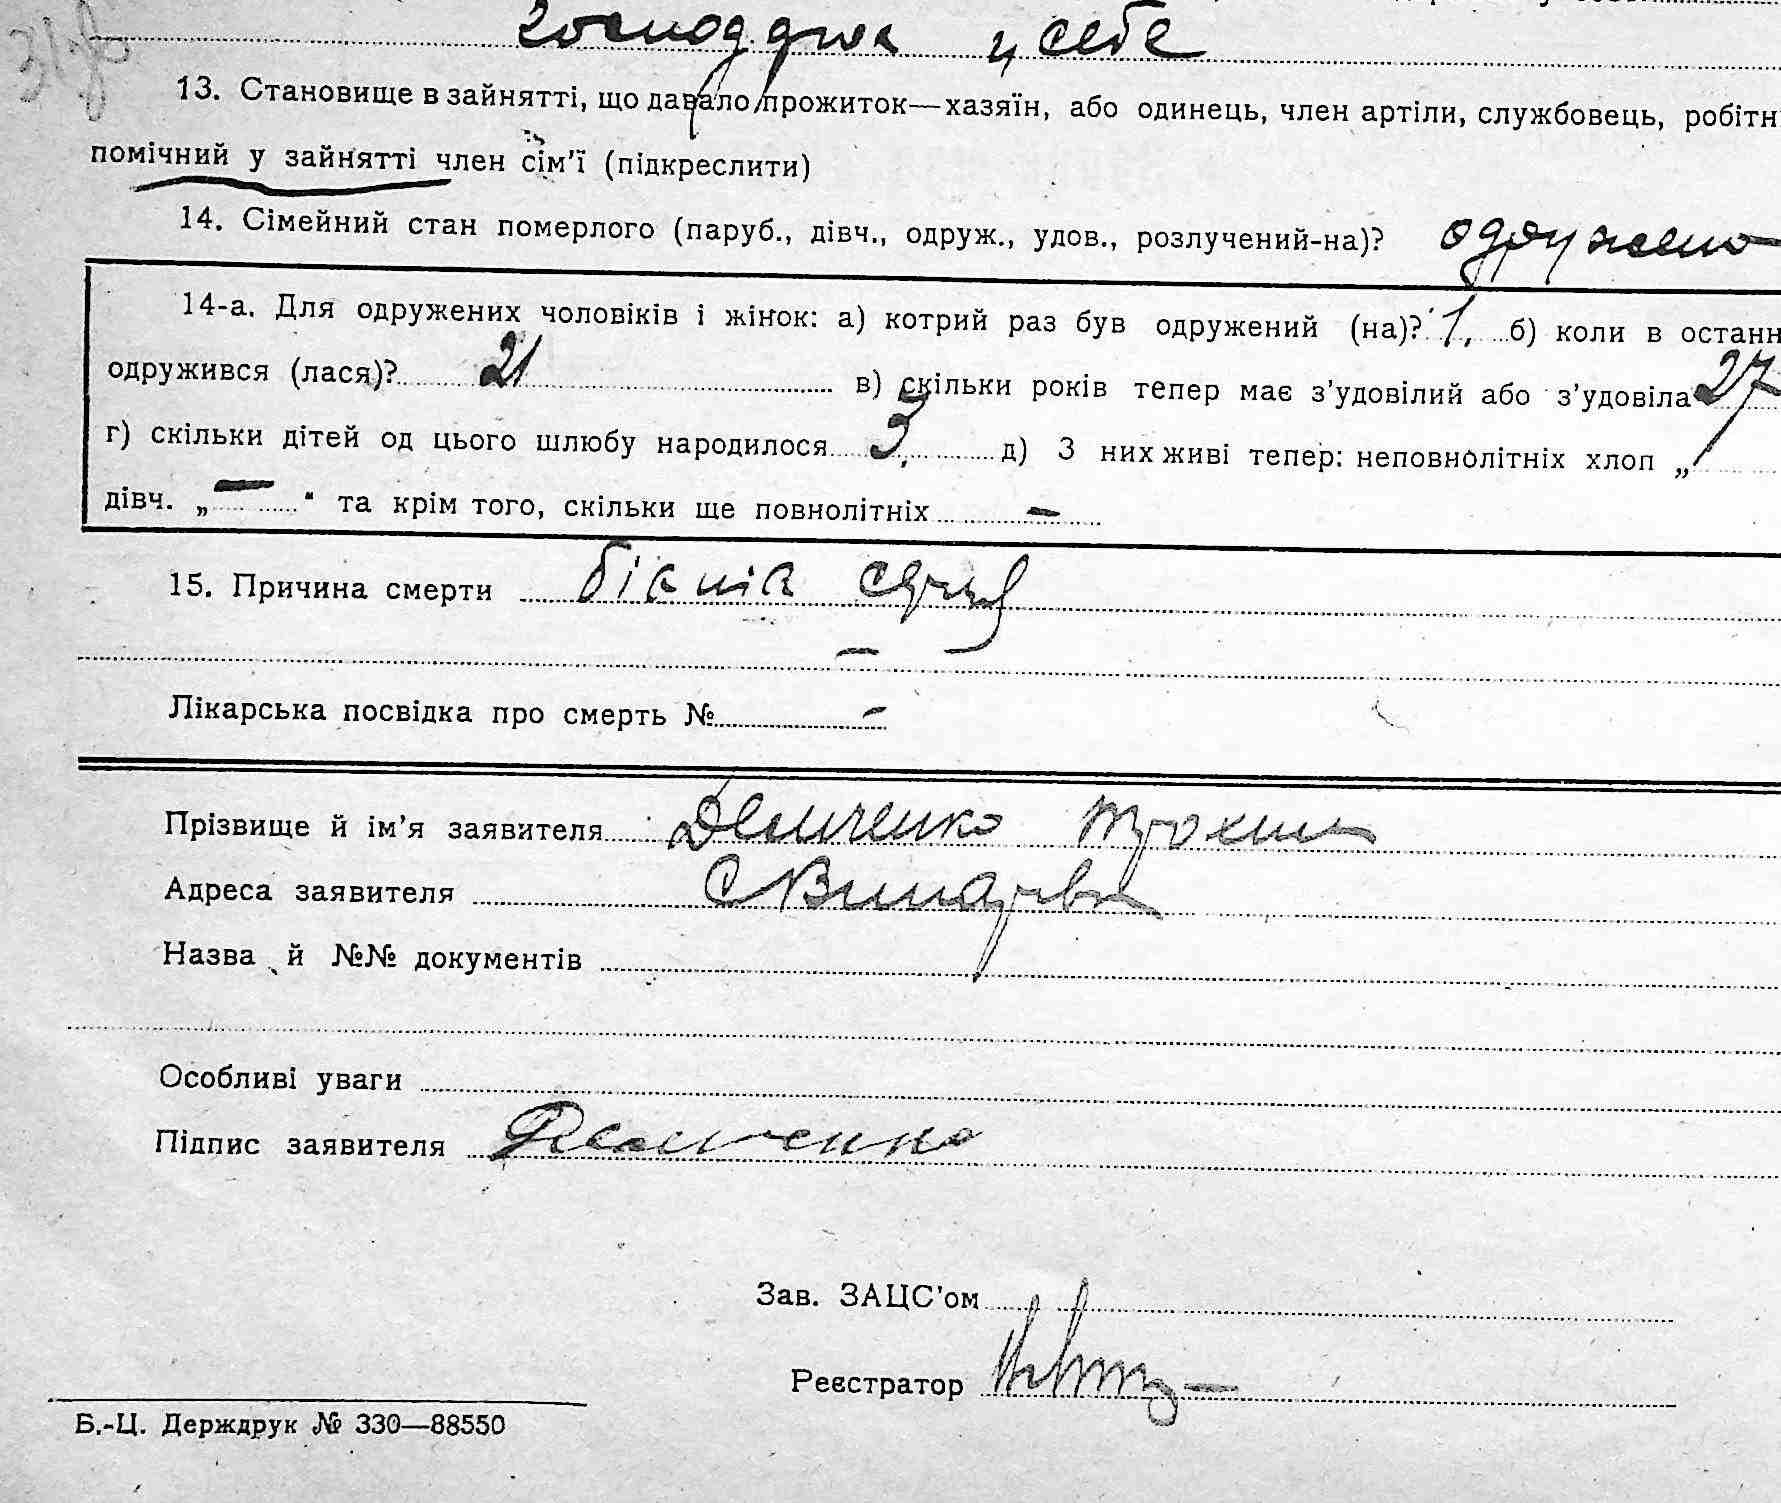 у себе
13. Становище в зайнятті, що давало прожиток—хазяїн, або одинець, член артіли, службовець, робітн
помічний у зайнятті член сім'ї (підкреслити)
14. Сімейний стан померлого (паруб., дівч., одруж., удов., розлучений-на)? одружено
14-а. Для одружених чоловіків і жінок: а) котрий раз був одружений (на)? 1, б) коли в останн
одружився (лася)? 21 в) скільки років тепер має з'удовілий або з'удовіла 27
г) скільки дітей од цього шлюбу народилося 3, д) З них живі тепер: неповнолітніх хлоп „ 1
дівч. „ — “ та крім того, скільки ще повнолітніх —
15. Причина смерти
—
Лікарська посвідка про смерть № -
Прізвище й ім'я заявителя Демченко Трохим
Адреса заявителя
Назва й №№ документів
Особливі уваги
Підпис заявителя Демченко
Зав. ЗАЦС'ом
Реєстратор
Б.-Ц. Держдрук № 330—88550